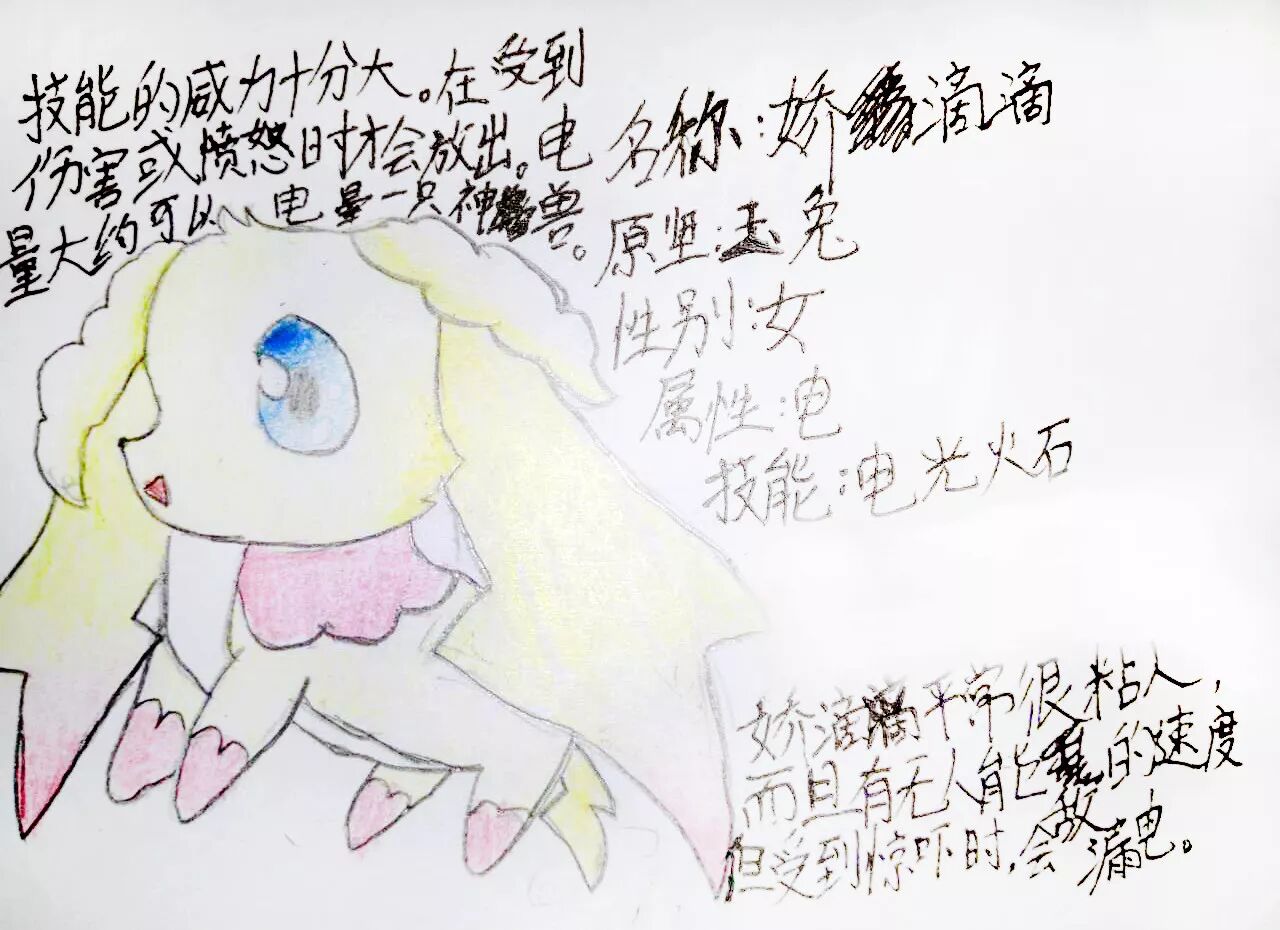 技能的威力十分大。在受到
伤害或愤怒时才会放出。电
量大约可以电晕一只神兽。
名称:娇滴滴
原型:玉兔
性别:女
属性:电
技能:电光火石
娇滴滴平常很粘人,
而且有无人能敌的速度
但受到惊吓时,会漏电。